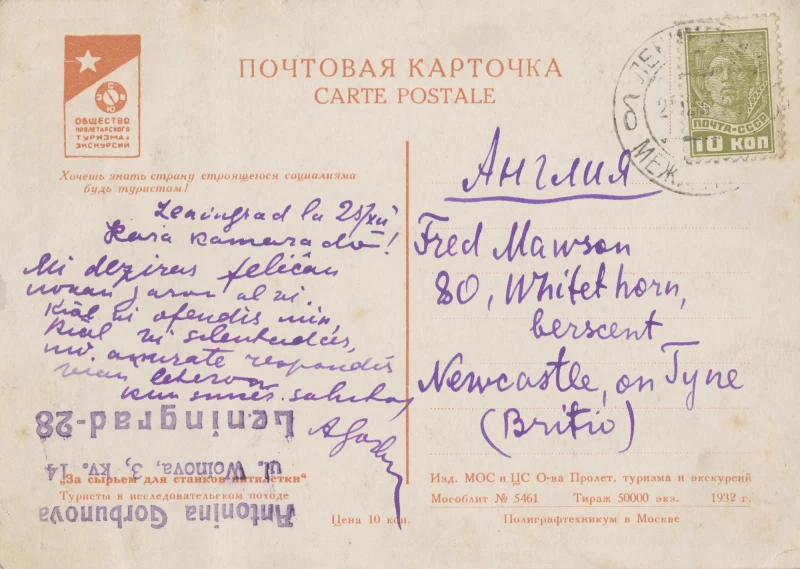 ОБЩЕСТВО
ПРОЛЕТАРСКОГО
ТУРИЗМА и
ЭКСКУРСИЙ
ПОЧТОВАЯ КАРТОЧКА
CARTE POSTALE
ПОЧТА-СССР
10 КОП
Хочешь знать страну строящегося социализма
будь туристом!
Leningrad la 25/XII
Kara kamarado!
Mi deziras feliĉan
novan jaron al vi.
Kial vi ofendis min,
Kial vi silentadas,
mi akurate respondis
vian leteron
Kun sinces. salutoj
Англия
Fred Mawson
80, Whitethorn,
berscent
Newcastle, on Tyne
(Britio)
Antonina Gorbunova
ul. Woinova, 3, kv. 14
Leningrad-28
„За сырьем для станков пятилетки“
Туристы в исследовательском походе
Цена 10 коп.
Изд. МОС и ЦС О-ва Пролет. туризма и экскурсий
Мособлит № 5461 Тираж 50000 экз. 1932 г.
Полиграфтехникум в Москве